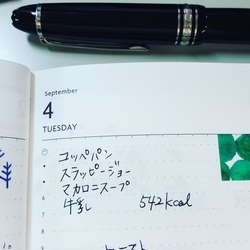 September
4
TUESDAY
コッペパン
スラッピージョー
マカロニスープ
牛乳 542kcal